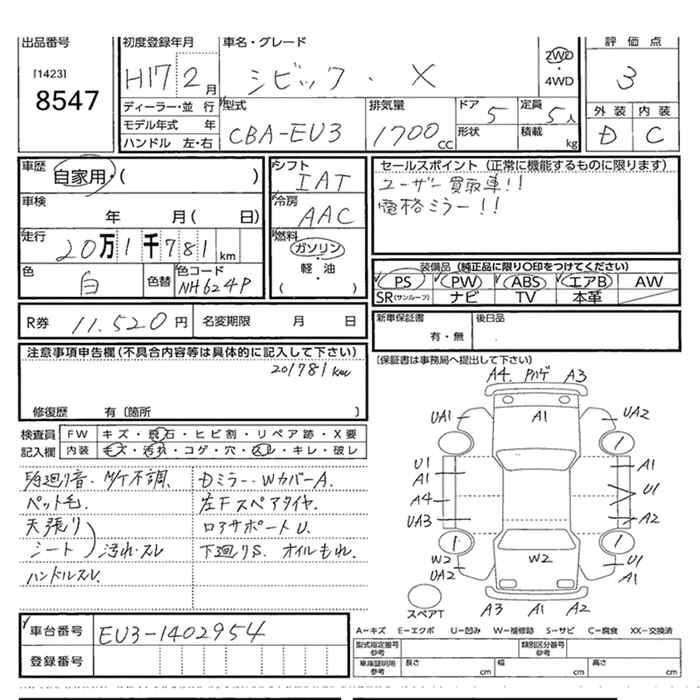 出品番号
[1423]
8547
初度登録年月
H17 2月
車名・グレード
シビック ・ X
2WD
・
4WD
評価点
3
外装 内装
D C
ディーラー・並行
モデル年式 年
ハンドル 左・右
型式
CBA-EU3
排気量
1700cc
ドア 5
形状
定員 5人
積載 kg
車歴
自家用・( )
車検
年 月( 日)
走行
20万1千781km
色
白
色替
色コード
NH624P
シフト
IAT
冷房
AAC
燃料
ガソリン
・
軽・油
( )
セールスポイント(正常に機能するものに限ります)
ユーザー買取車!!
電格ミラー!!
装備品(純正品に限り○印をつけてください)
PS PW ABS エアB AW
SR(サンルーフ) ナビ TV 本革
R券 11.520円
名変期限 月 日
新車保証書
有・無
後日品
注意事項申告欄(不具合内容等は具体的に記入して下さい)
201781km
修復歴 有〔箇所 〕
[保証書は事務局へ提出して下さい]
検査員
記入欄
FW キズ・飛石・ヒビ割・リペア跡・X要
内装 キズ・汚れ・コゲ・穴・スレ・キレ・破レ
廻り音・M/T不調.
ペット毛.
天張り
シート 汚れ・スレ
ハンドルスレ.
Dミラー・WカバーA.
左Fスペアタイヤ.
ロアサポートU.
下廻りS. オイルもれ.
A4. ハゲ A3
UA1 A1 UA2
U1
A1
A4
UA3
A1
U1
A2
W2
UA2
W2
U1
A1
スペアT
A3 A1 A2
車台番号
EU3-1402954
登録番号
A-キズ E-エクボ U-凹み W-補修跡 S-サビ C-腐食 XX-交換済
型式指定番号
参考
類別区分番号
参考
車庫証明用
参考
長さ cm
幅 cm
高さ cm